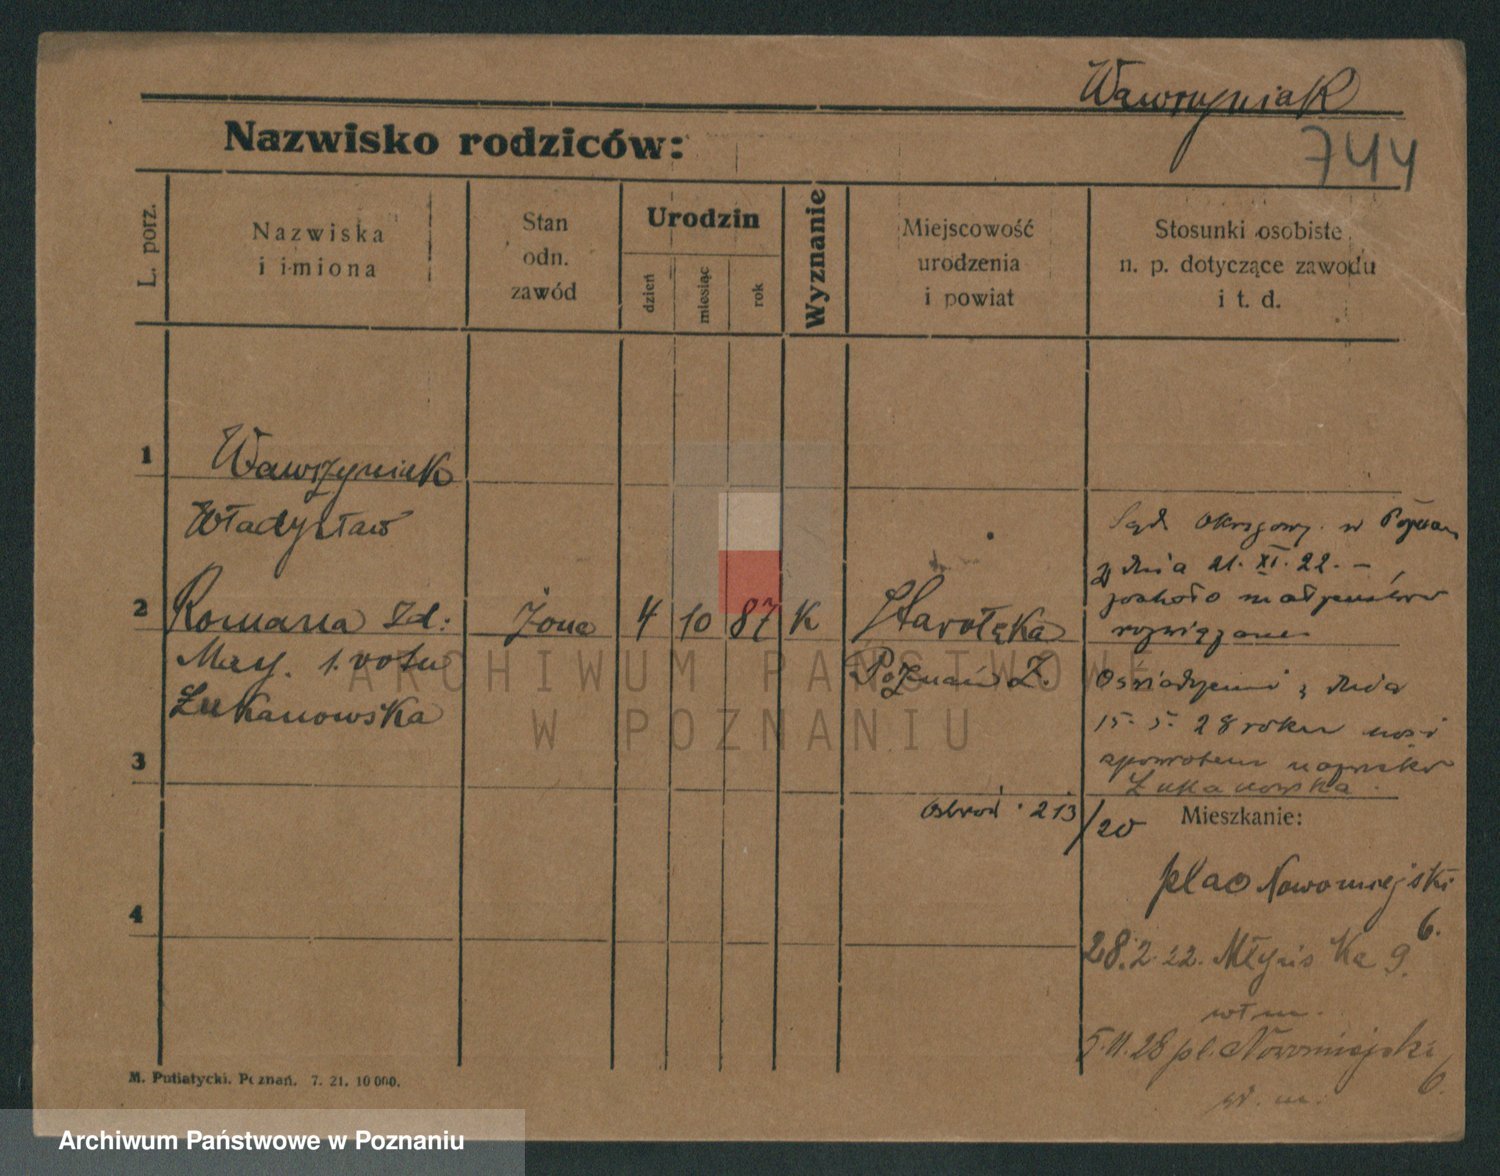 Wawrzyniak
Nazwisko rodziców:
744
L. porz.
Nazwiska
i imiona
Stan
odn.
zawód
Urodzin
dzień
miesiąc
rok
Wyznanie
Miejscowość
urodzenia
i powiat
Stosunki osobiste
n. p. dotyczące zawodu
i t. d.
1
Wawrzyniak
Władysław
2
Romana Zd:
żona
4
10
87
K
Starołęka
Poznań Z.
May. 1. votu
Łukanowska
Sąd Okręgowy w Poznan
z dnia 21. XI. 22. –
małżeństwo
rozwiązane
Oświadczeni z dnia
15. 5. 28 roku nosi
zpowrotem nazwisko
Łukanowska
3
213/20
Mieszkanie:
plac Nowomiejski
6.
4
28.2.22. Młyńska 9.
wł m.
5.11.28 pl. Nowomiejski
6.
M. Putiatycki. Poznań. 7. 21. 10 000.
ARCHIWUM PAŃSTWOWE
W POZNANIU
Archiwum Państwowe w Poznaniu